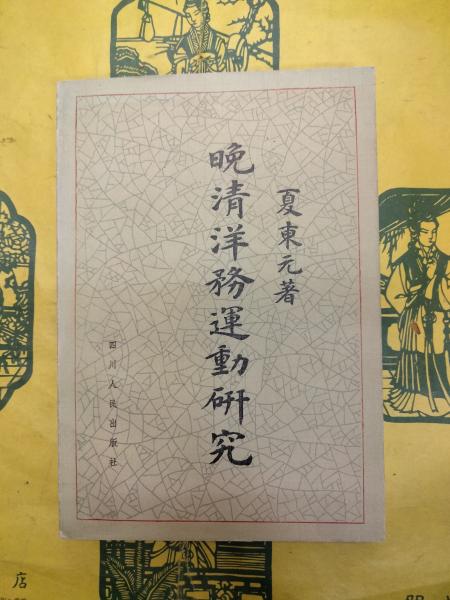 夏東元著
晚清洋務運動研究
四川人民出版社
店